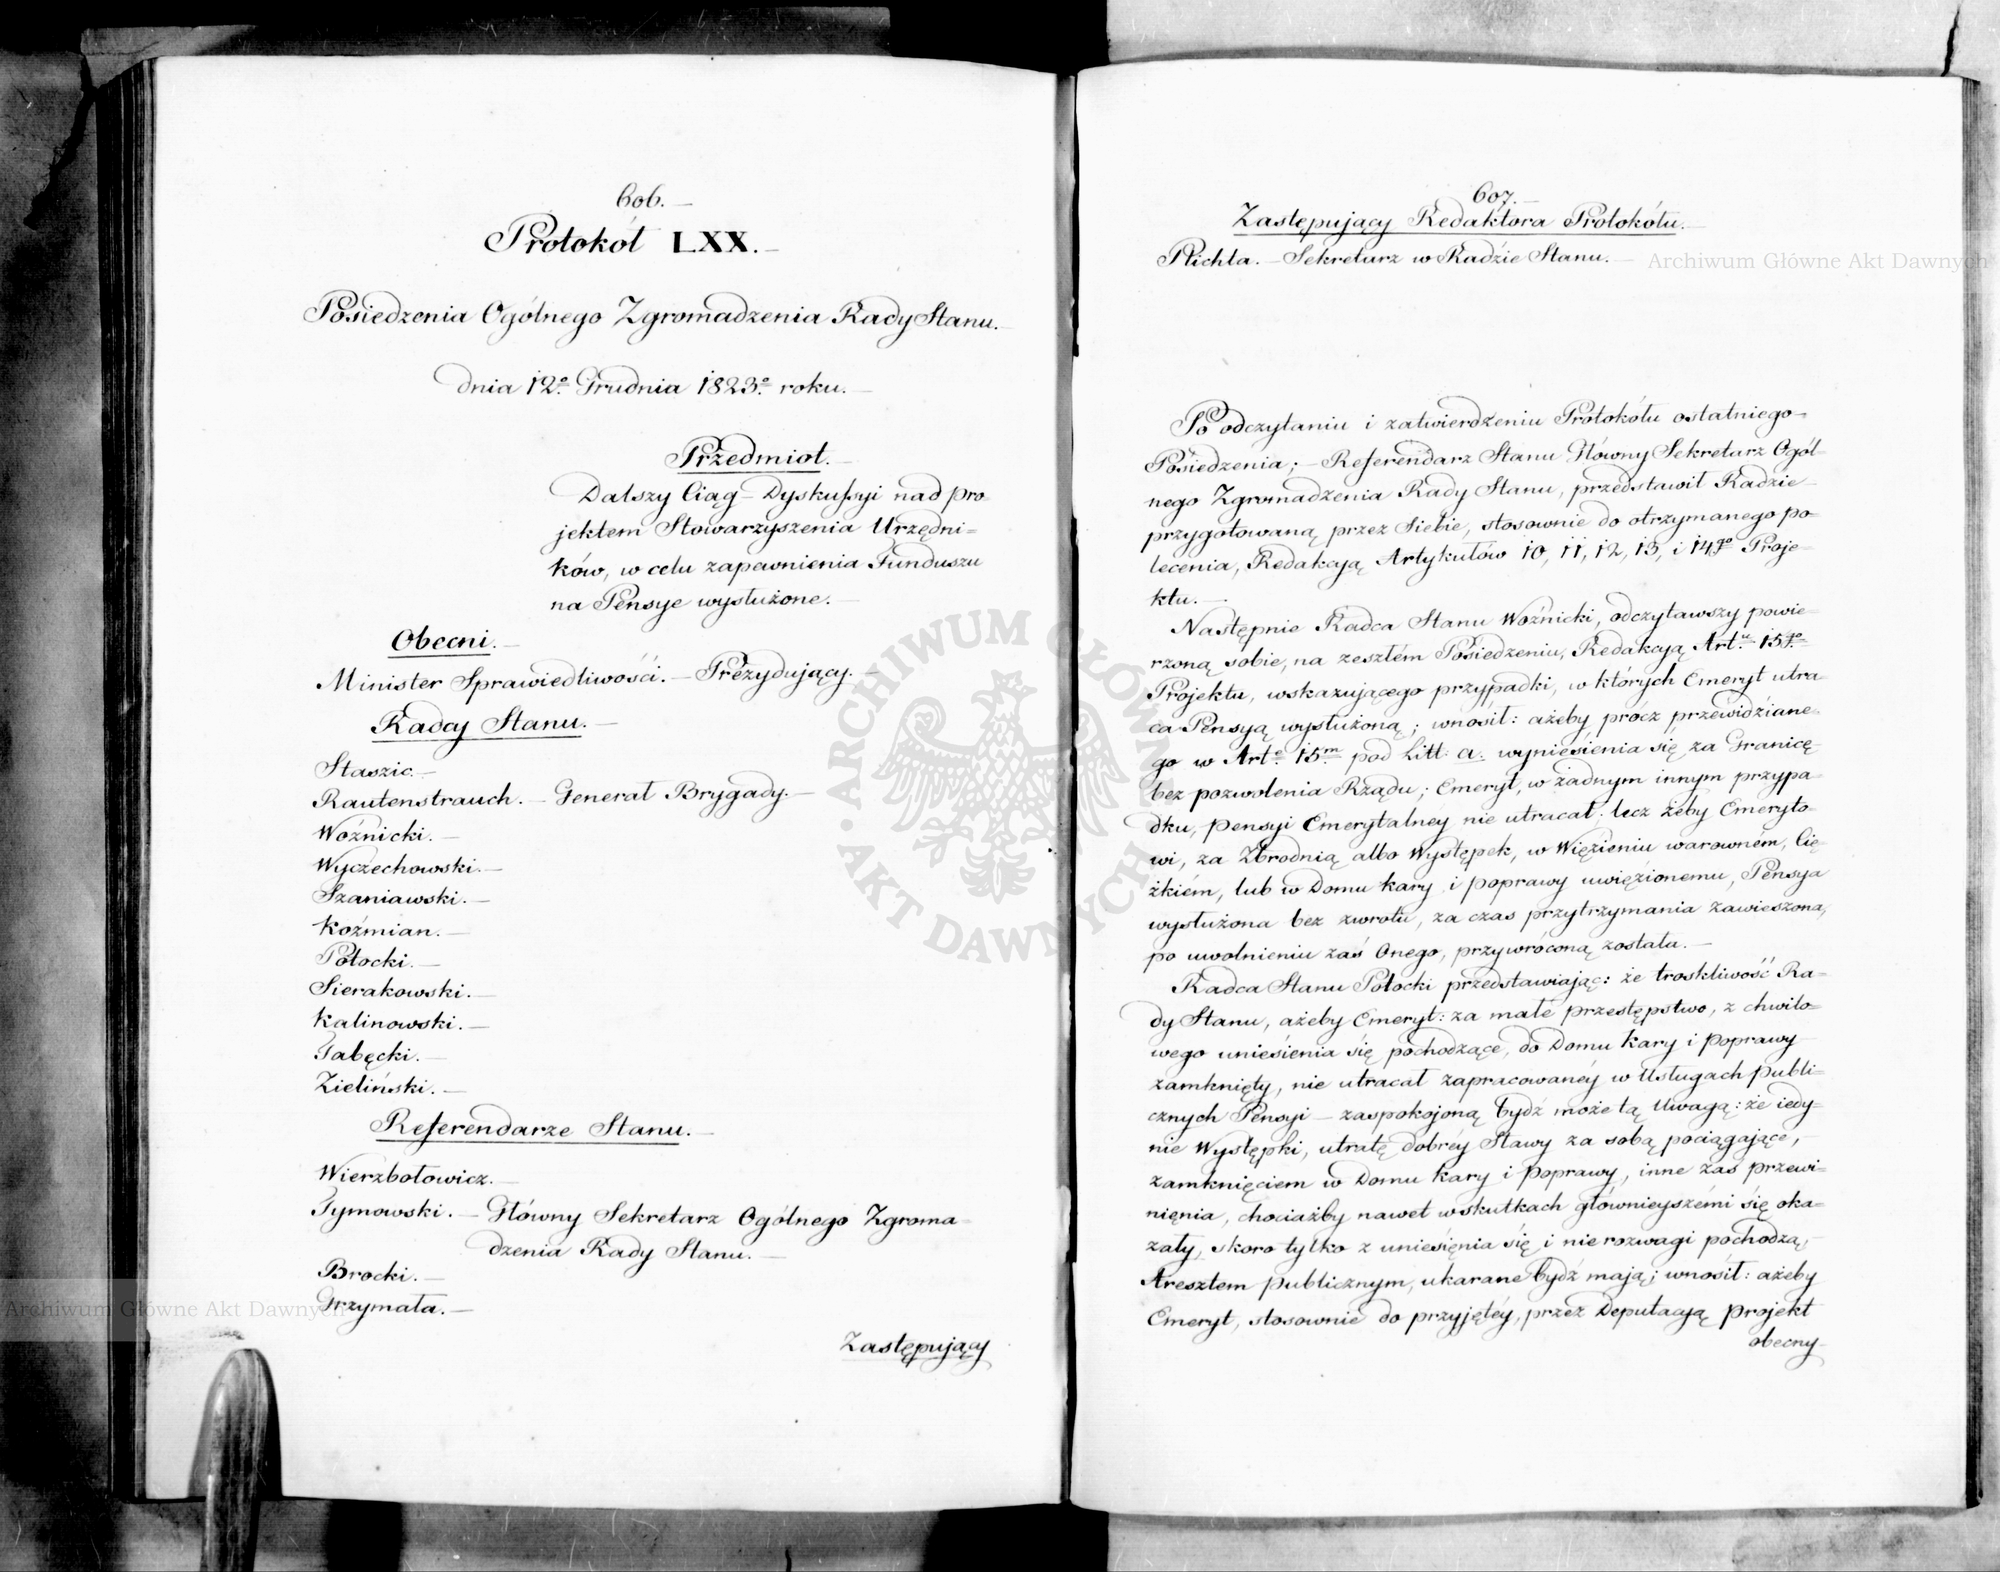 606.
Protokół LXX.
Posiedzenia Ogólnego Zgromadzenia Rady Stanu.
dnia 12º Grudnia 1823º roku.
Przedmiot.
Dalszy Ciąg Dyskussyi nad pro-
jektem Stowarzyszenia Urzędni=
ków, w celu zapewnienia Funduszu
na Pensye wysłużone.
Obecni.
Minister Sprawiedliwości. – Prezydujący.
Radcy Stanu.
Staszic.
Rautenstrauch. – Generał Brygady.
Woźnicki.
Wyczechowski.
Szaniawski.
Koźmian.
Potocki.
Sierakowski.
Kalinowski.
Tabęcki.
Zieliński.
Referendarze Stanu.
Wierzbołowicz.
Tymowski. – Główny Sekretarz Ogólnego Zgroma=
dzenia Rady Stanu.
Brocki.
Grzymała.
Zastępujący
607.
Zastępujący Redaktora Protokółu.
Plichta. – Sekretarz w Radzie Stanu.
Po odczytaniu i zatwierdzeniu Protokółu ostatniego
Posiedzenia; – Referendarz Stanu Główny Sekretarz Ogól-
nego Zgromadzenia Rady Stanu, przedstawił Radzie
przygotowaną przez Siebie, stosownie do otrzymanego po-
lecenia, Redakcyą Artykułów 10, 11, 12, 13, i 14go Proje-
ktu. –
Następnie Radca Stanu Woźnicki, odczytawszy powie=
rzoną sobie, na zeszłém Posiedzeniu, Redakcyą Artu 15go
Projektu, wskazującego przypadki, w których Emeryt utra-
ca Pensyą wysłużoną; wnosił: ażeby prócz przewidziane-
go w Arte 15m pod Litt: a. wyniesienia się za Granicę
bez pozwolenia Rządu; Emeryt, w żadnym innym przypa-
dku, Pensyi Emerytalney nie utracał; lecz żeby Emeryto-
wi, za Zbrodnią albo Występek, w Więzieniu warowném, Cię-
żkiém, lub w Domu kary i poprawy uwięzionemu, Pensya
wysłużona bez zwrotu, za czas przytrzymania zawieszoną,
po uwolnieniu zaś Onego, przywróconą została. –
Radca Stanu Potocki przedstawiając: że troskliwość Ra-
dy Stanu, ażeby Emeryt: za małe przestępstwo, z chwilo-
wego uniesienia się pochodzące, do Domu Kary i Poprawy
zamknięty, nie utracał zapracowanéy w Usługach publi-
cznych Pensyi – zaspokojoną bydź może tą Uwagą: że iedy-
nie Występki, utratę dobréy Sławy za sobą pociągające, –
zamknięciem w Domu Kary i Poprawy, inne zaś przewi=
nienia, chociażby nawet w skutkach główniejszémi się oka-
zały, skoro tylko z uniesienia się i nierozwagi pochodzą, –
Aresztem publicznym, ukarane bydź mają; wnosił: ażeby
Emeryt, stosownie do przyjętéy, przez Deputacyą Projekt
obecny
Archiwum Główne Akt Dawnych
Archiwum Główne Akt Dawnych
ARCHIWUM GŁÓWNE AKT DAWNYCH